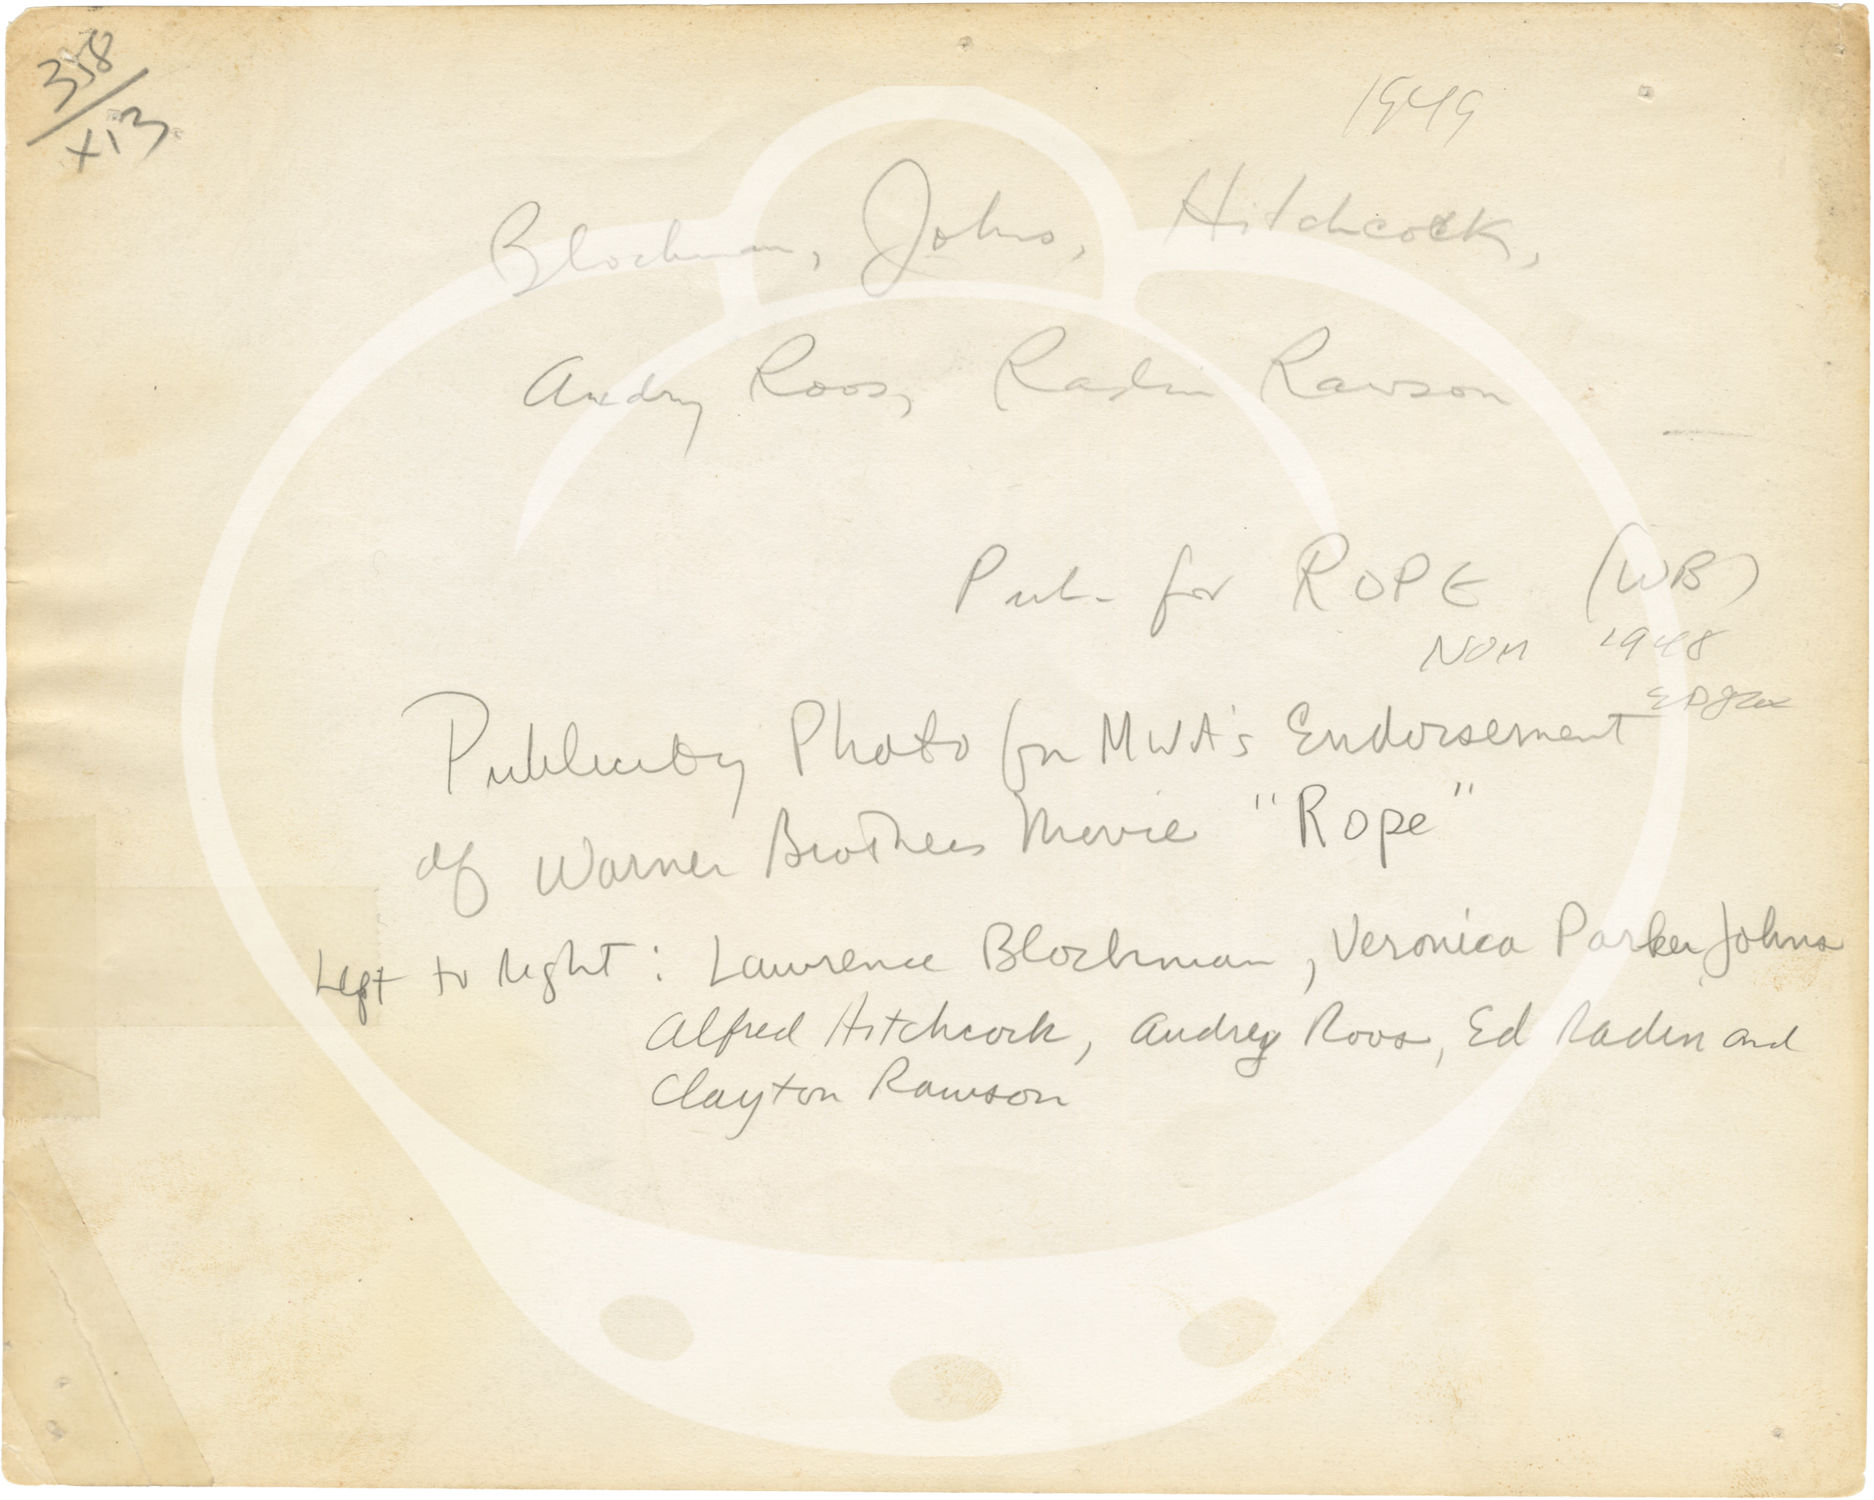 358
X13
1949
Blochman, Johns, Hitchcock,
Audrey Roos, Radin Rawson
Pub. for ROPE (WB)
NOM 1948
EDGAR
Publicity Photo for MWA's Endorsement
of Warner Brothers Movie "Rope"
Left to right: Lawrence Blochman, Veronica Parker Johns
Alfred Hitchcock, Audrey Roos, Ed Radin and
Clayton Rawson